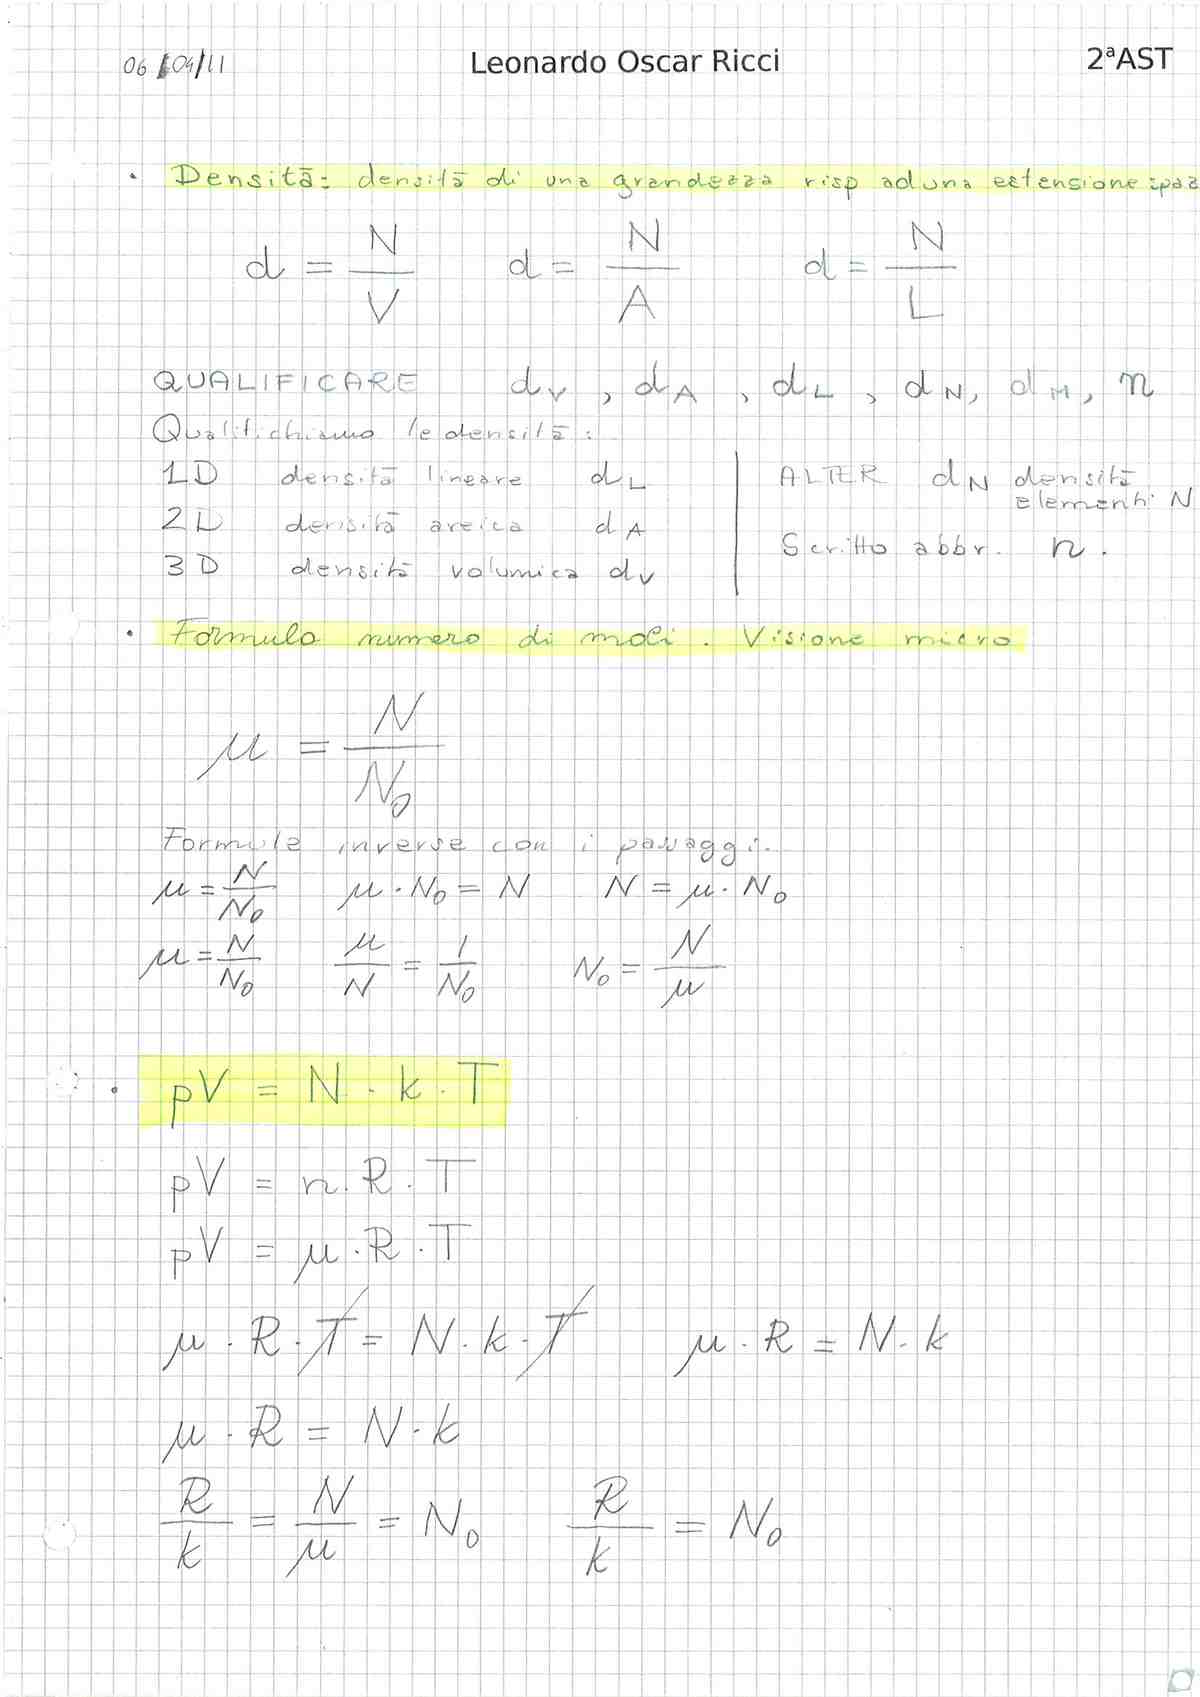 06/04/11 Leonardo Oscar Ricci 2ªAST
• Densità: densità di una grandezza risp ad una estensione spaz
d = N/V d = N/A d = N/L
QUALIFICARE d_V , d_A , d_L , d_N, d_M, n
Qualifichiamo le densità:
1D densità lineare d_L
2D densità areica d_A
3D densità volumica d_V
ALTER d_N densità
elementi N
Scritto abbr. n.
• Formula numero di moli. Visione micro
μ = N/N₀
Formule inverse con i passaggi.
μ = N/N₀ μ · N₀ = N N = μ · N₀
μ = N/N₀ μ/N = 1/N₀ N₀ = N/μ
• pV = N · k · T
pV = n · R · T
pV = μ · R · T
μ · R · T = N · k · T μ · R = N · k
μ · R = N · k
R/k = N/μ = N₀ R/k = N₀